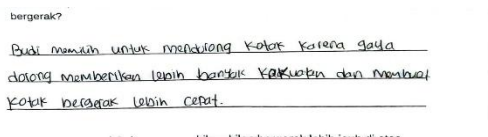 bergerak?
Budi memilih untuk mendorong kotak karena gaya
dorong memberikan lebih banyak kekuatan dan membuat
kotak bergerak lebih cepat.